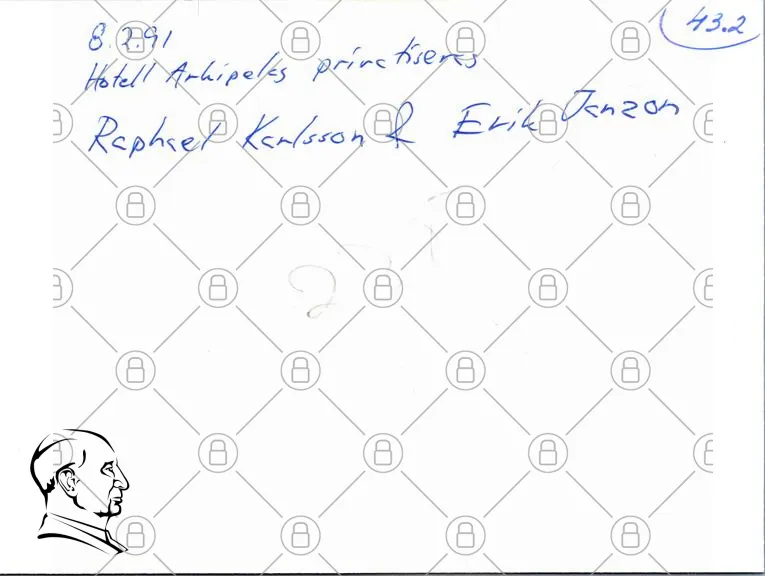 43.2
8.2.91
Hotell Arkipelag privatiseras
Raphael Karlsson & Erik Janzon